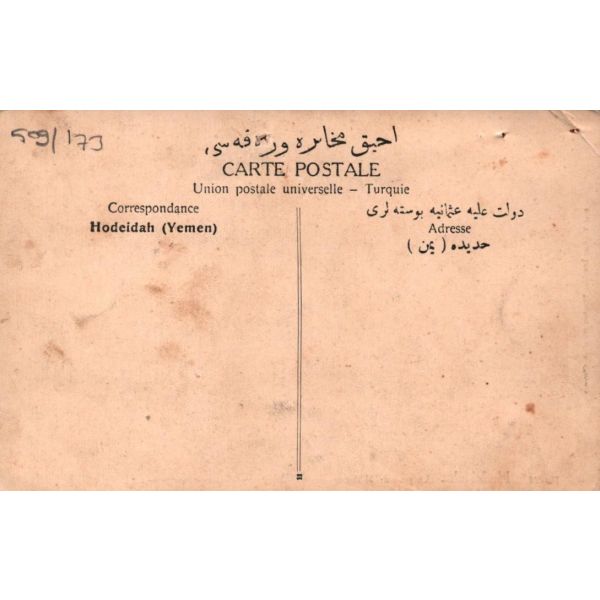 509/173
احيق مخابره ورقه‌سى
CARTE POSTALE
Union postale universelle – Turquie
Correspondance
Hodeidah (Yemen)
دولت عليه عثمانيه پوسته لرى
Adresse
حديده (يمن)